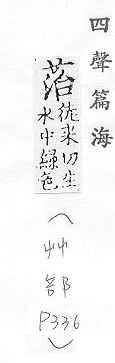 四聲篇海
菭
徒来切生
水中綠色
(艸部P336)